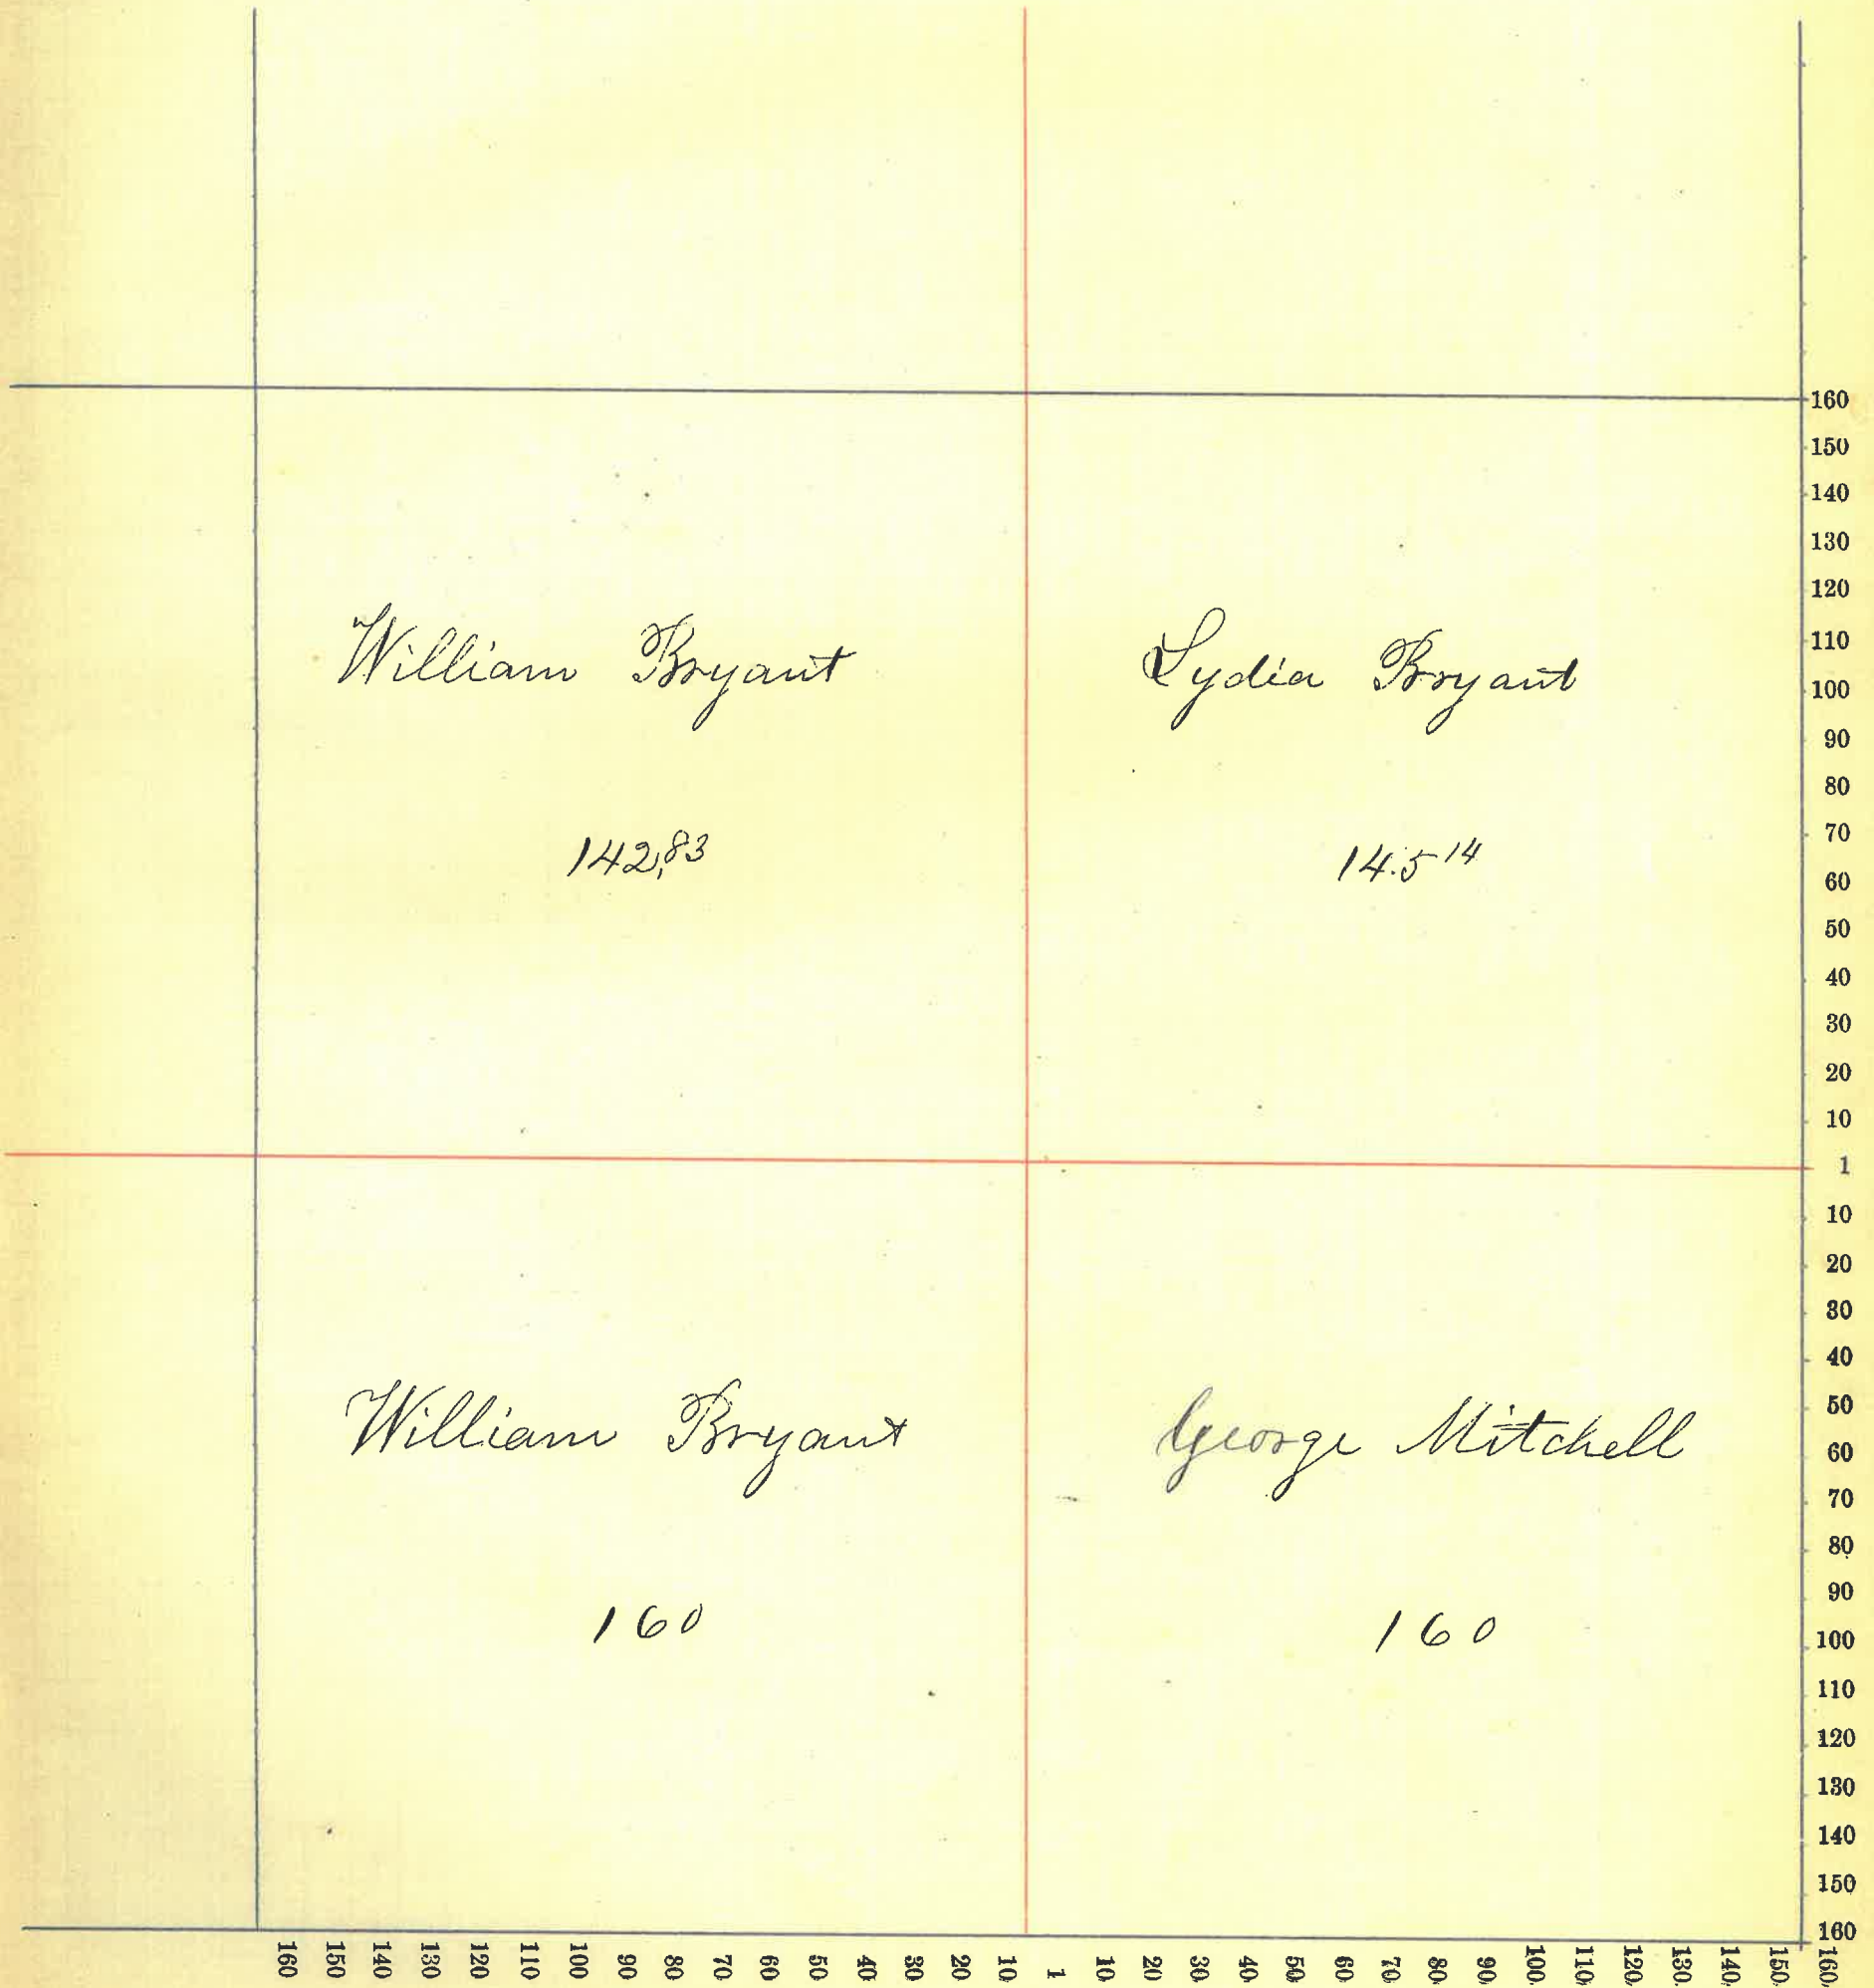 William Bryant
Lydia Bryant
142,83
145 14
William Bryant
George Mitchell
160
160
160
150
140
130
120
110
100
90
80
70
60
50
40
30
20
10
1
10
20
30
40
50
60
70
80
90
100
110
120
130
140
150
160
160 150 140 130 120 110 100 90 80 70 60 50 40 30 20 10 1 10 20 30 40 50 60 70 80 90 100 110 120 130 140 150 160